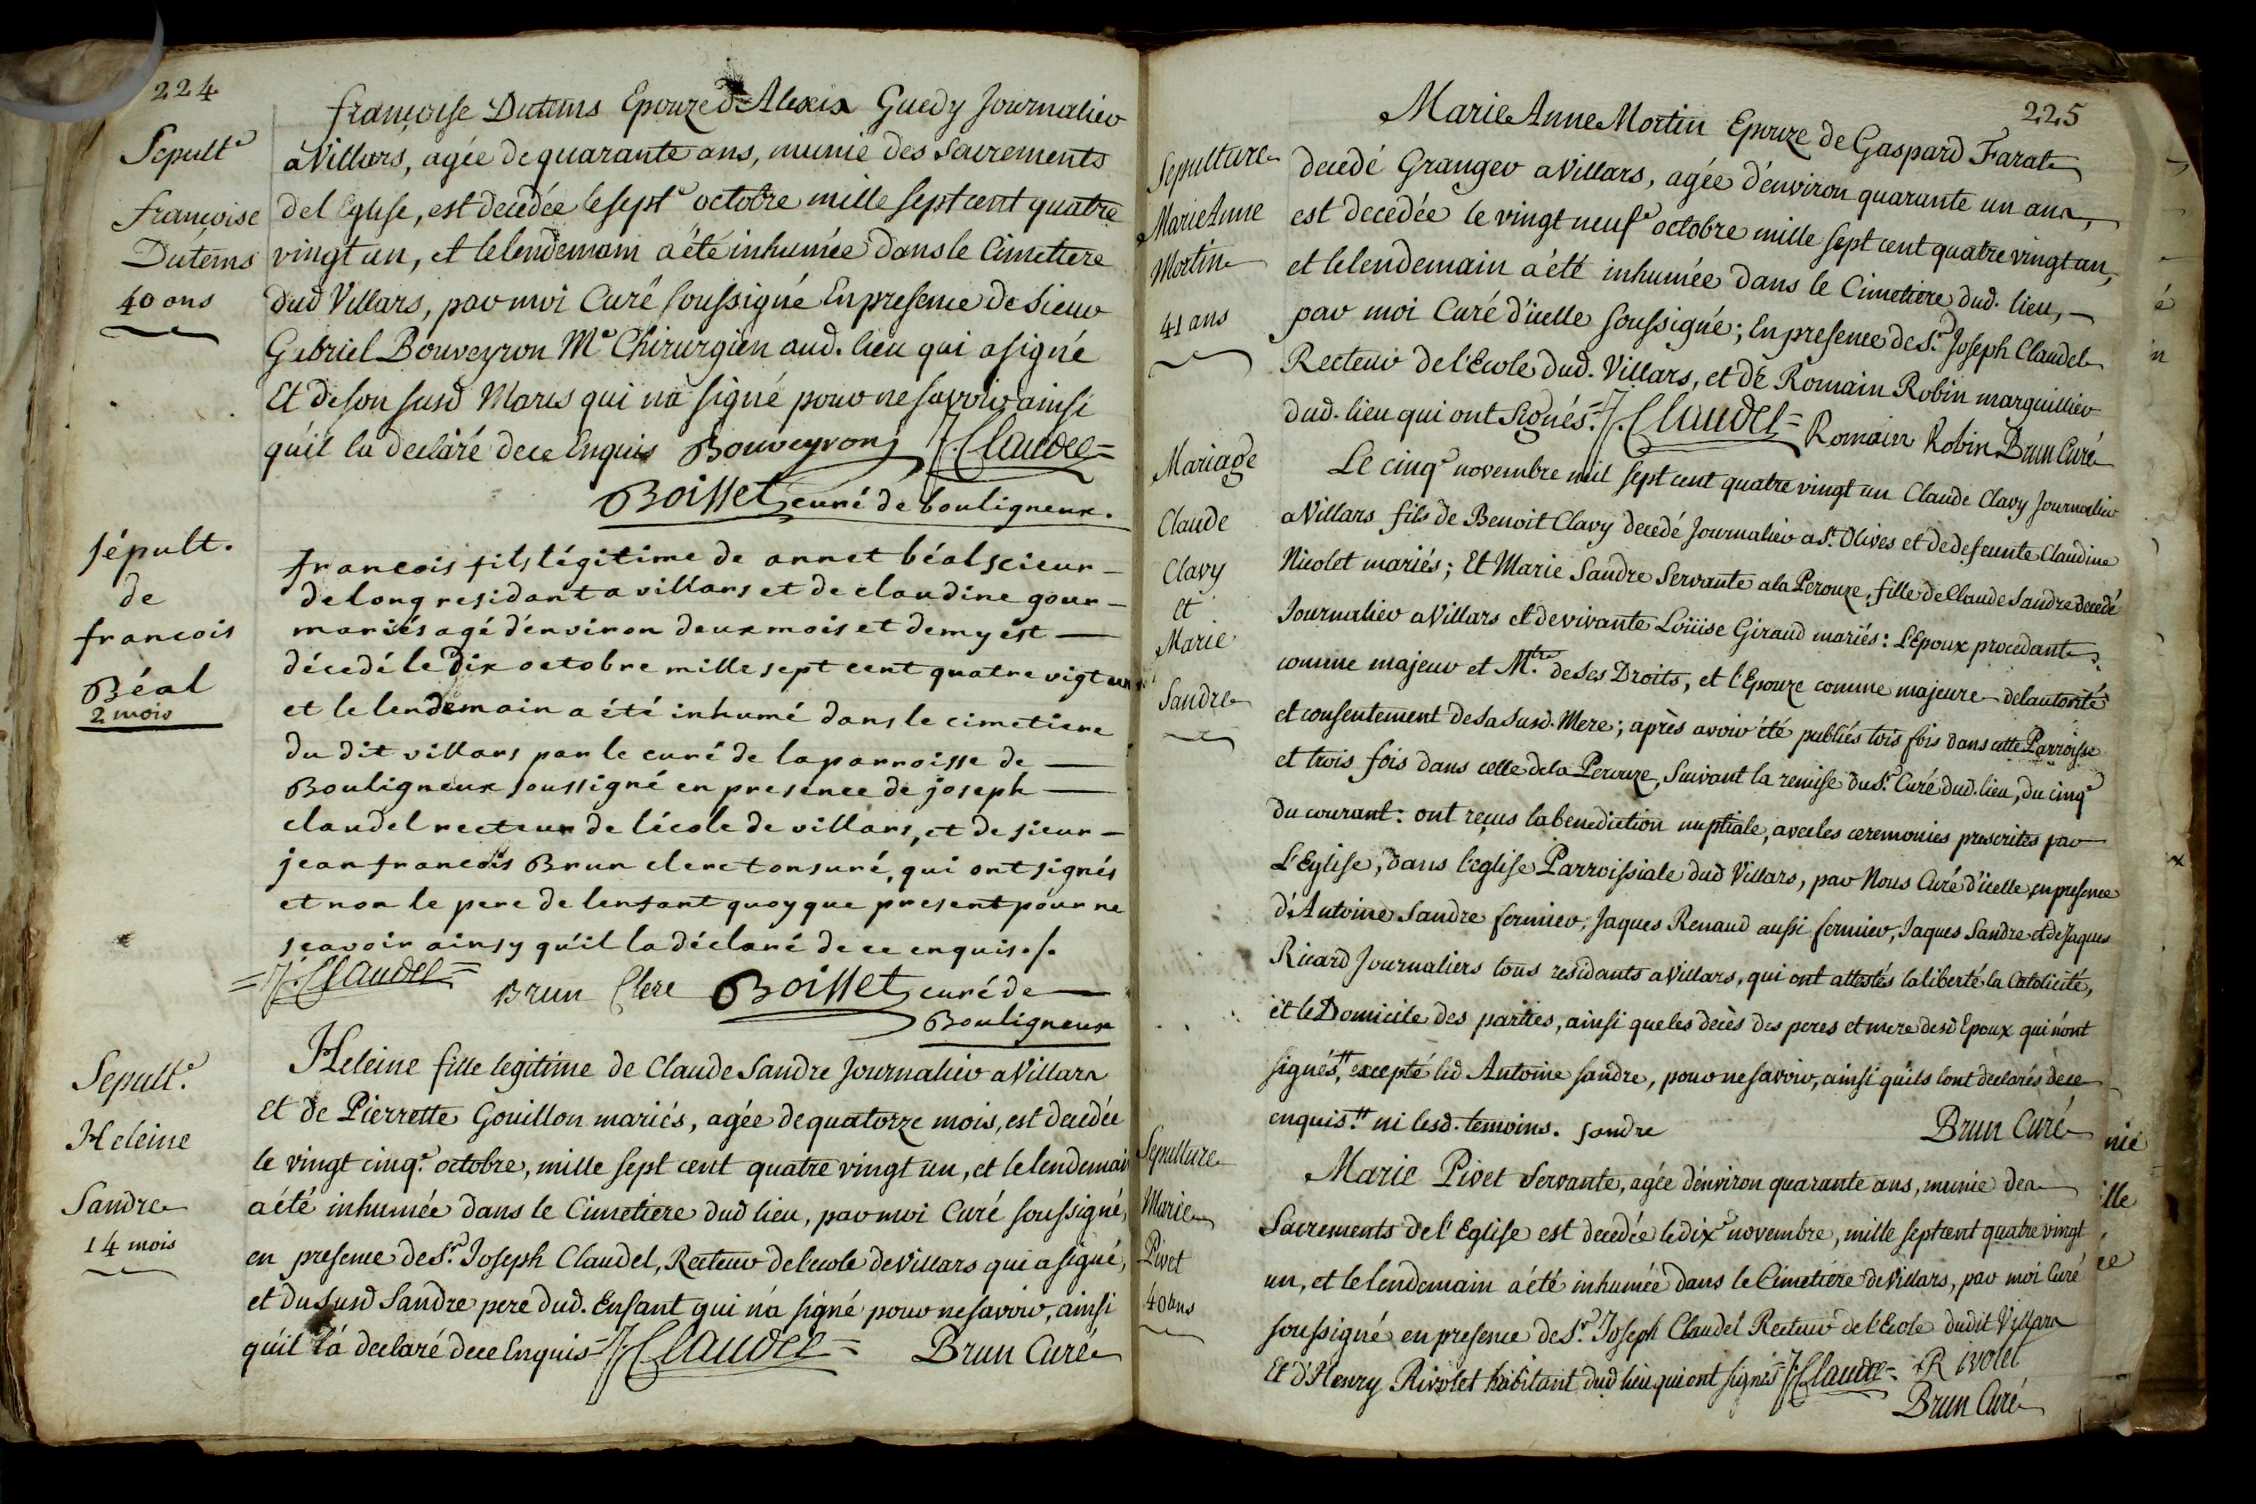 224
Sepult.e
françoise
Dutems
40 ans
françoise Dutems Epouze d'Alexis Guedy Journalier
a Villars, agée de quarante ans, munie des Sacrements
de l'Eglise, est decedée le sept.e octobre mille sept cent quatre
vingt un, et le lendemain a été inhumée dans le Cimetiere
dud Villars, par moi Curé soussigné En presence de Sieur
Gabriel Bouveyron M.e Chirurgien aud. lieu qui a signé
Et de son susd Maris qui n'a signé pour ne savoir ainsi
qu'il la declaré de ce Enquis Bouveyron J. Claudel
Boisset curé de bouligneux.
sépult.
de
francois
Béal
2 mois
francois fils légitime de annet béal scieur
de long residant a villars et de claudine gour
mariés agé d'environ deux mois et demy est
décedé le dix octobre mille sept cent quatre vigt un
et le lendemain a été inhumé dans le cimetiere
du dit villars par le curé de la parroisse de
Bouligneux soussigné en presence de joseph
claudel recteur de l'école de villars, et de sieur
jean francois Brun clerc tonsuré, qui ont signés
et non le pere de lenfant quoyque present pour ne
scavoir ainsy qu'il la déclaré de ce enquis./.
J. Claudel Brun Clerc Boisset curé de
Bouligneux
Sepult.e
Heleine
Sandre
14 mois
Heleine fille legitime de Claude Sandre Journalier a Villars
et de Pierrette Gouillon mariés, agée de quatorze mois, est decedée
le vingt cinq.e octobre, mille sept cent quatre vingt un, et le lendemain
a été inhumée dans le Cimetiere dud lieu, par moi Curé soussigné,
en presence de S.r Joseph Claudel, Recteur de l'ecole de Villars qui a signé,
et du susd Sandre pere dud. Enfant qui n'a signé pour ne savoir, ainsi
qu'il l'a declaré de ce Enquis J. Claudel Brun Curé
225
Sepulture
Marie Anne
Mortin
41 ans
Marie Anne Mortin Epouze de Gaspard Farat
decedé Granger a Villars, agée d'environ quarante un ans,
est decedée le vingt neuf.e octobre mille sept cent quatre vingt un,
et le lendemain a été inhumée dans le Cimetiere dud. lieu,
par moi Curé d'icelle soussigné; En presence de S.r Joseph Claudel
Recteur de l'Ecole dud. Villars, et de Romain Robin marguillier
dud. lieu qui ont signés. J. Claudel Romain Robin Brun Curé
Mariage
Claude
Clavy
et
Marie
Sandre
Le cinq.e novembre mil sept cent quatre vingt un Claude Clavy Journalier
a Villars fils de Benoit Clavy decedé Journalier a St. Olives et de defeunte Claudine
Nicolet mariés; Et Marie Sandre Servante a la Perouze, fille de Claude Sandre decedé
Journalier a Villars et de vivante Loüise Giraud mariés: L'Epoux procedant
comme majeur et M.tre de ses Droits, et l'Epouze comme majeure de l'autorité
et consentement de sa susd. Mere; après avoir été publiés trois fois dans cette Parroisse
et trois fois dans celle de la Perouze, suivant la remise du S.r Curé dud. lieu, du cinq.e
du courant: ont reçus la benediction nuptiale, avec les ceremonies prescrites par
L'Eglise, dans l'eglise Parroissiale dud Villars, par Nous Curé d'icelle, en presence
d'Antoine Sandre fermier, Jaques Renaud aussi fermier, Jaques Sandre et de Jaques
Ricard Journaliers tous residants a Villars, qui ont attestés la liberté la Catolicité,
et le Domicile des parties, ainsi que les decès des peres et mere desd Epoux qui n'ont
signés, excepté led Antoine sandre, pour ne savoir, ainsi qu'ils l'ont declarés de ce
enquis. ni lesd. temoins. sandre Brun Curé
Sepulture
Marie
Pivet
40 ans
Marie Pivet Servante, agée d'environ quarante ans, munie des
Sacrements de l'Eglise est decedée le dix.e novembre, mille sept cent quatre vingt
un, et le lendemain a été inhumée dans le Cimetiere de Villars, par moi Curé
soussigné en presence de S.r Joseph Claudel Recteur de l'Ecole dudit Villars
Et d'Henry Rivolet habitant dud lieu qui ont signés J. Claudel Rivolet
Brun Curé